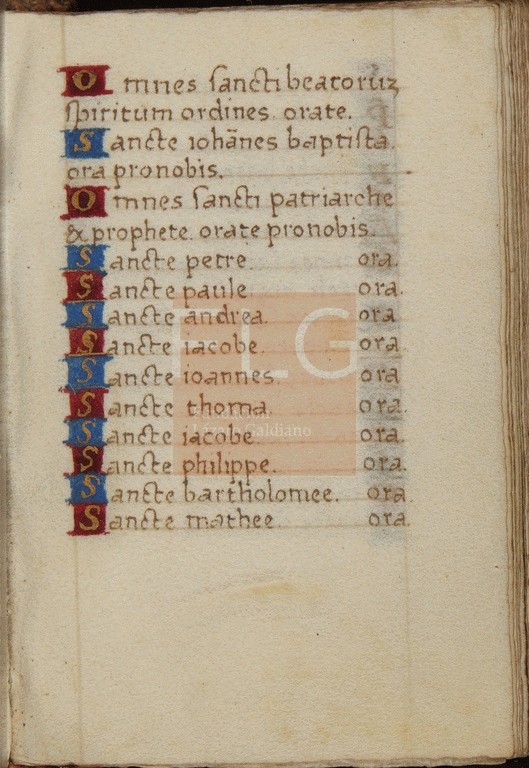 Omnes sancti beatoruz
spiritum ordines. orate.
Sancte iohānes baptista.
ora pronobis.
Omnes sancti patriarche
& prophete. orate pronobis.
Sancte petre. ora.
Sancte paule ora.
Sancte andrea. ora
Sancte iacobe. ora.
Sancte ioannes. ora
Sancte thoma. ora.
Sancte iacobe. ora.
Sancte philippe. ora.
Sancte bartholomee. ora.
Sancte mathee ora.
FLG
Lázaro Galdiano